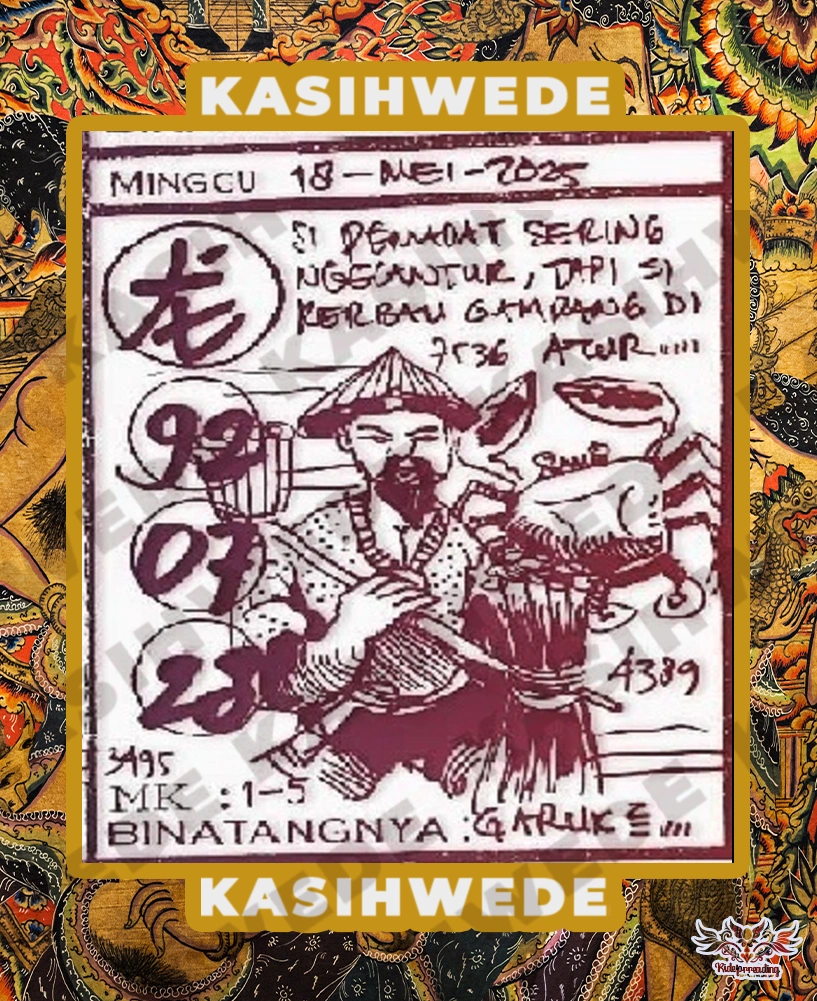 KASIHWEDE
MINGGU 18-MEI-2025
SI PEMADAT SERING
NGGELANTUR, TAPI SI
KERBAU GAMPANG DI
7536 ATUR....
92
07
28
4389
3495
MK : 1-5
BINATANGNYA : GARUK
KASIHWEDE